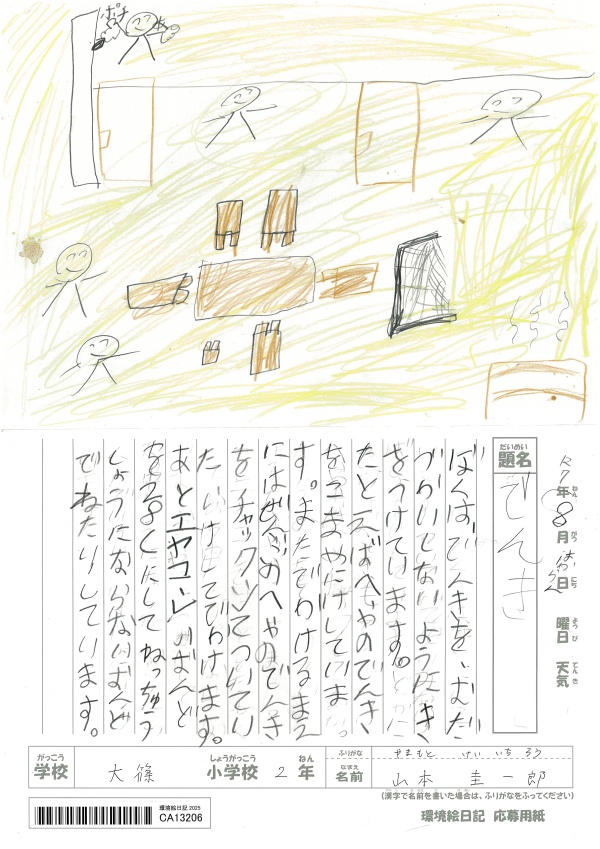 ポチ
だいめい
題名
でんき
R7年8月 日 曜日 天気
ねん がつ にち ようび てんき
ぼくはでんきを、むだ
づかいしないようにき
をつけています。とくに
たとえばへやのでんき
をこまめにけしていま
す。またでかけるまえ
にはぜんぶのへやのでんき
をチャックしてついてい
たらけしてでかけます。
あとエヤコンのおんど
をよくにしてねっちゅう
しょうにならないおんど
でねたりしています。
がっこう
学校
大篠
しょうがっこう
小学校
2
ねん
年
ふりがな
やまもと けいいちろう
なまえ
名前
山本 圭一郎
(漢字で名前を書いた場合は、ふりがなをふってください)
環境絵日記 2025
CA13206
環境絵日記 応募用紙